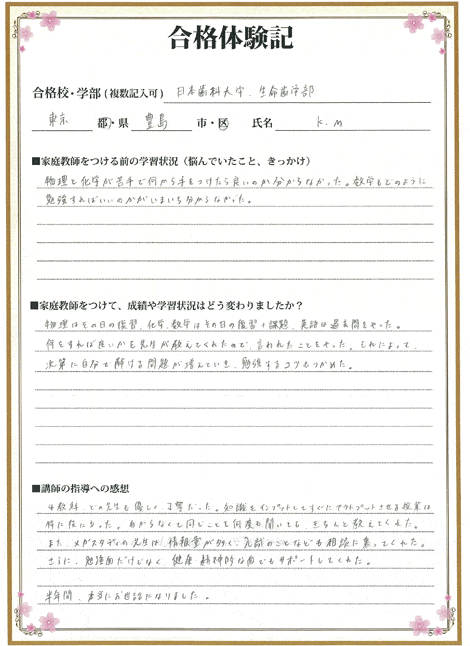 合格体験記
合格校・学部(複数記入可) 日本歯科大学、生命歯学部
東京 都・県 豊島 市・区 氏名 K.M
■家庭教師をつける前の学習状況(悩んでいたこと、きっかけ)
物理と化学が苦手で何から手をつけたら良いのか分からなかった。数学もどのように
勉強すればいいのかがいまいち分からなかった。
■家庭教師をつけて、成績や学習状況はどう変わりましたか?
物理はその日の復習、化学、数学はその日の復習+課題、英語は過去問をやった。
何をすれば良いかを先生が教えてくれたので、言われたことをやった。それによって、
次第に自分で解ける問題が増えていき、勉強するコツもつかめた。
■講師の指導への感想
4教科、どの先生も優しく、丁寧だった。知識をインプットしてすぐにアウトプットさせる授業は
特に役に立った。わからなくて同じことを何度も聞いても、きちんと教えてくれた。
また、メガスタディの先生は、情報量が多く、入試のことなども相談に乗ってくれた。
さらに、勉強面だけでなく、健康、精神的な面でもサポートしてくれた。
半年間、本当にお世話になりました。